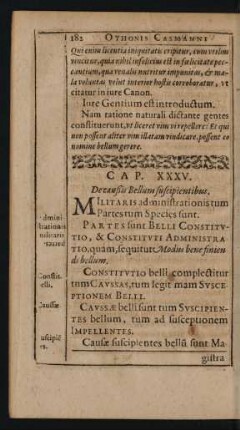 182 OTHONIS CASMANNI
Qui enim licentia iniquitatis eripitur, cum vtiliter
vincitur, quia nihil infelicius est in fœlicitate pec-
cantium, qua pœnalis nutritur impunitas, & ma-
la voluntas velut interior hostis corroboratur, vt
citatur in iure Canon.
Iure Gentium est introductum.
Nam ratione naturali dictante gentes
constituerunt, vt liceret vim vi repellere: Et qui
non possent aliter vim illatam vindicare, possent eo
nomine bellum gerere.
CAP. XXXV.
De caussis Bellum suscipientibus.
MILITARIS administrationis tum
Partes tum Species sunt.
PARTES sunt BELLI CONSTITV-
TIO, & CONSTITVTI ADMINISTRA
TIO, quam, sequitur Modus bene finien
di bellum.
CONSTITVTIO belli complectitur
tum CAVSSAS, tum legitimam SVSCE
PTIONEM BELLI.
CAVSSÆ belli sunt tum SVSCIPIEN-
TES bellum, tum ad susceptionem
IMPELLENTES.
Causæ suscipientes bellū sunt Ma-
gistra
Constit.
elli.
Caussæ